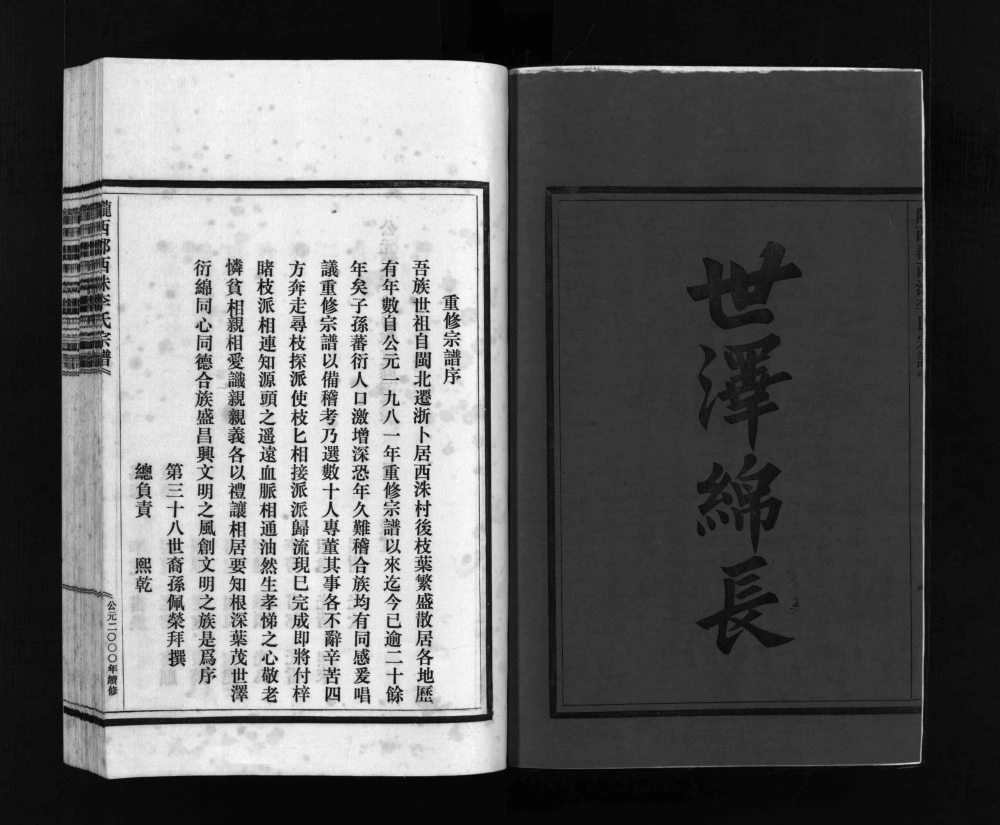 世澤綿長
重修宗譜序
吾族世祖自閩北遷浙卜居西洙村後枝葉繁盛散居各地歷
有年數自公元一九八一年重修宗譜以來迄今已逾二十餘
年矣子孫蕃衍人口激增深恐年久難稽合族均有同感爰唱
議重修宗譜以備稽考乃選數十人專董其事各不辭辛苦四
方奔走尋枝探派使枝匕相接派派歸流現巳完成即將付梓
睹枝派相連知源頭之遥遠血脈相通油然生孝悌之心敬老
憐貧相親相愛識親親義各以禮讓相居要知根深葉茂世澤
衍綿同心同德合族盛昌興文明之風創文明之族是爲序
第三十八世裔孫佩榮拜撰
總負責 熙乾
隴西郡西洙李氏宗譜
公元二〇〇〇年續修